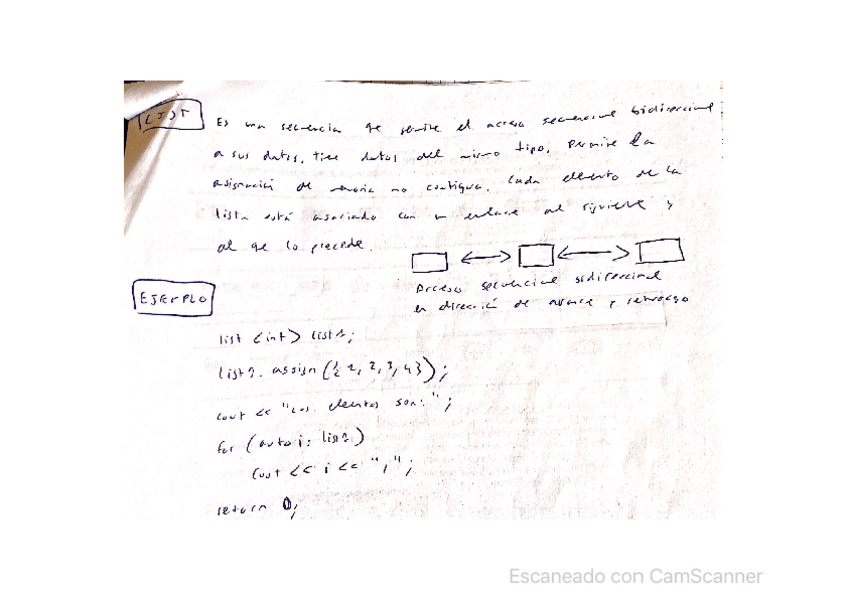 LIST
Es una secuencia que permite el acceso secuencial bidireccional
a sus datos, tiene datos del mismo tipo. Permite la
asignación de memoria no contigua. Cada elemento de la
lista está asociado con un enlace al siguiente y
al que lo precede.
Acceso secuencial bidireccional
en dirección de avance y retroceso
EJEMPLO
list <int> list1;
list1. assign ({ 1, 2, 3, 4 });
cout << "Los elementos son: ";
for (auto i: list1)
cout << i << ",";
return 0;
Escaneado con CamScanner